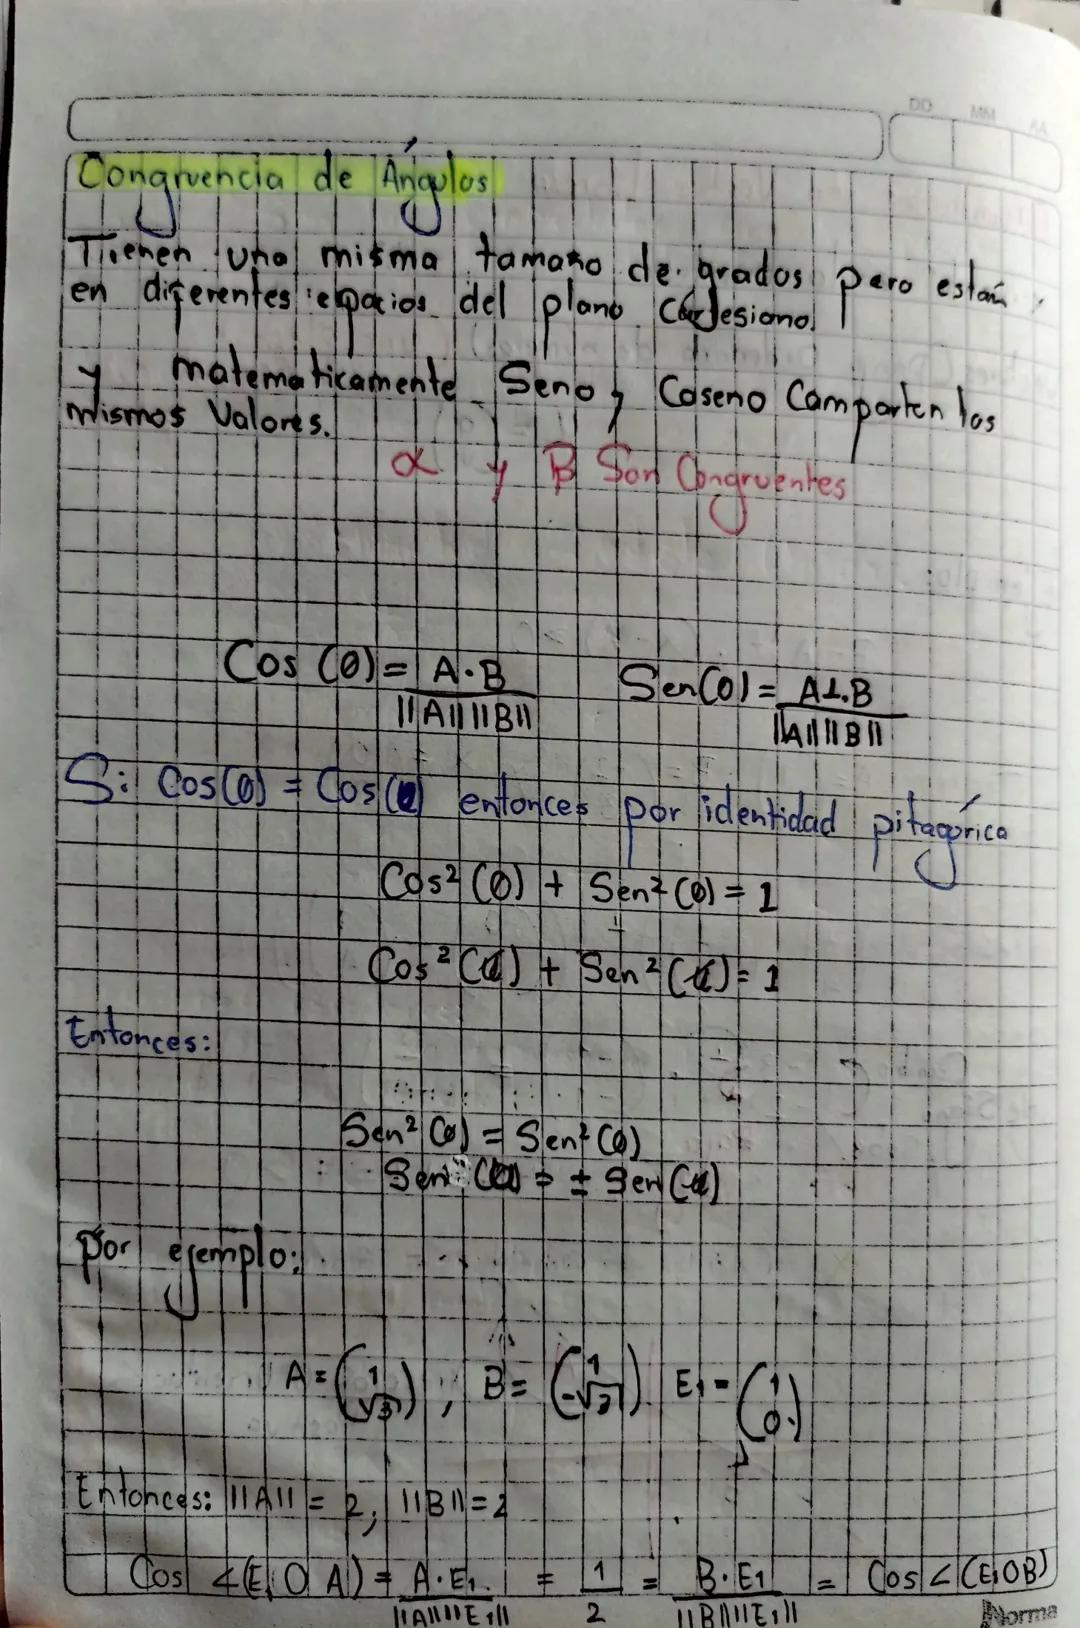 DD MM AA
Congruencia de Ángulos
Tienen una misma tamaño de grados pero están
en diferentes epacios del plano Cartesiano
y matematicamente Seno y Coseno Comparten los
mismos Valores.
α y β Son Congruentes
Cos (θ) = A·B / ||A|| ||B|| Sen(θ) = A⊥·B / ||A|| ||B||
Si Cos(θ) = Cos(α) entonces por identidad pitagórica
Cos² (θ) + Sen² (θ) = 1
Cos² (α) + Sen² (α) = 1
Entonces:
Sen² (θ) = Sen² (θ)
Sen = ± Sen (α)
por ejemplo:
A = (1 √3), B = (1 -√3) E₁ = (1 0)
Entonces: ||A|| = 2, ||B|| = 2
Cos ∠(E₁ O A) = A·E₁ / ||A|| ||E₁|| = 1/2 = B·E₁ / ||B|| ||E₁|| = Cos ∠(E₁OB)
Norma